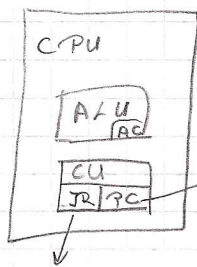 CPU
ALU
AC
CU
IR PC